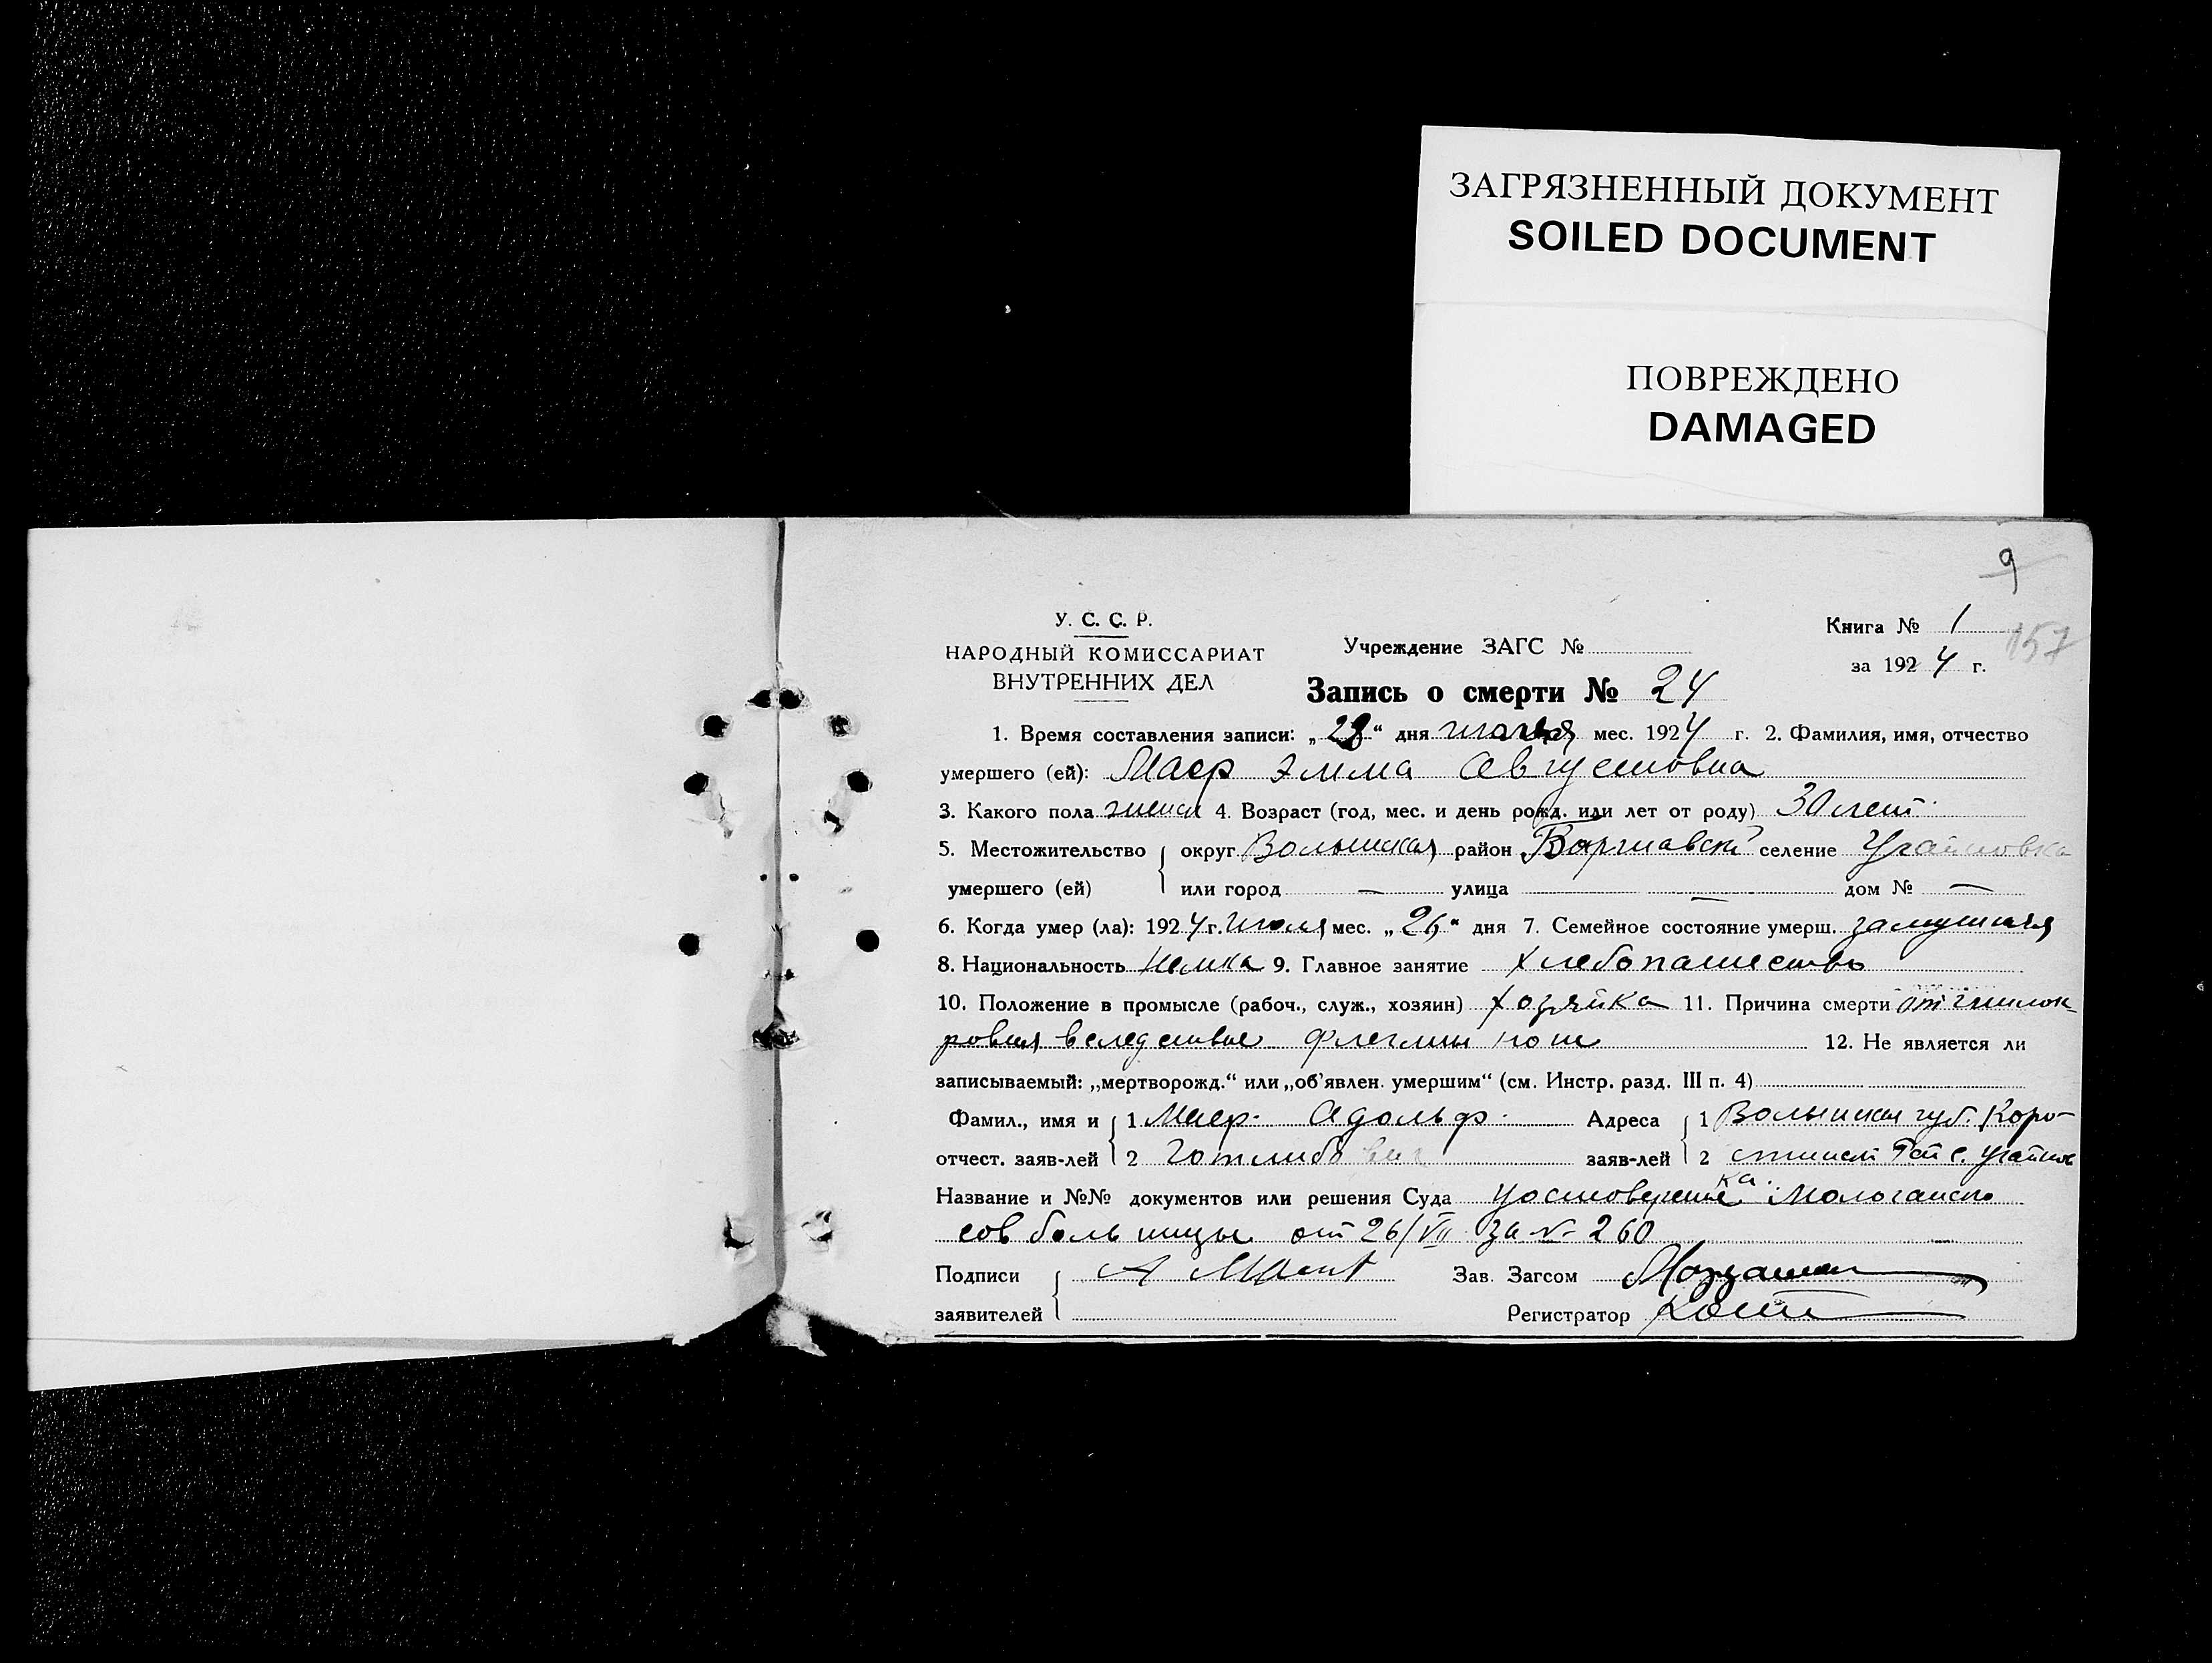 ЗАГРЯЗНЕННЫЙ ДОКУМЕНТ
SOILED DOCUMENT
ПОВРЕЖДЕНО
DAMAGED
9
У. С. С. Р.
НАРОДНЫЙ КОМИССАРИАТ
ВНУТРЕННИХ ДЕЛ
Учреждение ЗАГС №
Книга № 1
157
за 1924 г.
Запись о смерти № 24
1. Время составления записи: „28“ дня июля мес. 1924 г. 2. Фамилия, имя, отчество
умершего (ей): Маер Эмма Августовна
3. Какого пола женск 4. Возраст (год, мес. и день рожд. или лет от роду) 30 лет.
5. Местожительство округ Волынская район селение
умершего (ей) или город — улица — дом № —
6. Когда умер (ла): 1924 г. июля мес. „26“ дня 7. Семейное состояние умерш. замужняя
8. Национальность Немка 9. Главное занятие хлебопашество
10. Положение в промысле (рабоч., служ., хозяин) хозяйка 11. Причина смерти от гнилок-
ровия вследствие флегмоны ноги 12. Не является ли
записываемый: „мертворожд.“ или „об’явлен. умершим“ (см. Инстр. разд. III п. 4)
Фамил., имя и 1 Маер Адольф Адреса 1 Волынская губ. Коро-
отчест. заяв-лей 2 Готлибович заяв-лей 2 с.
Название и №№ документов или решения Суда удостоверение
сов больницы от 26/VII за № 260
Подписи А Зав. Загсом
заявителей Регистратор